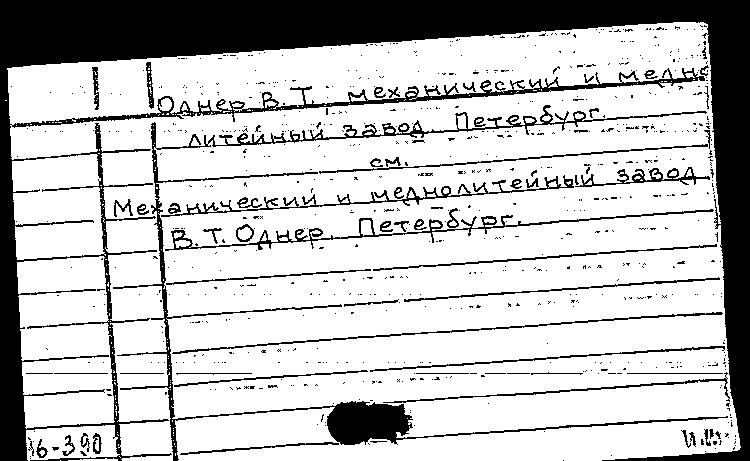 Однер В.Т., механический и медно
литейный завод. Петербург.
см.
Механический и меднолитейный завод
В.Т. Однер. Петербург.
6-390